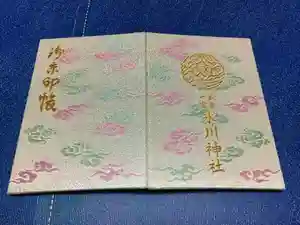 御朱印帳
氷川神社